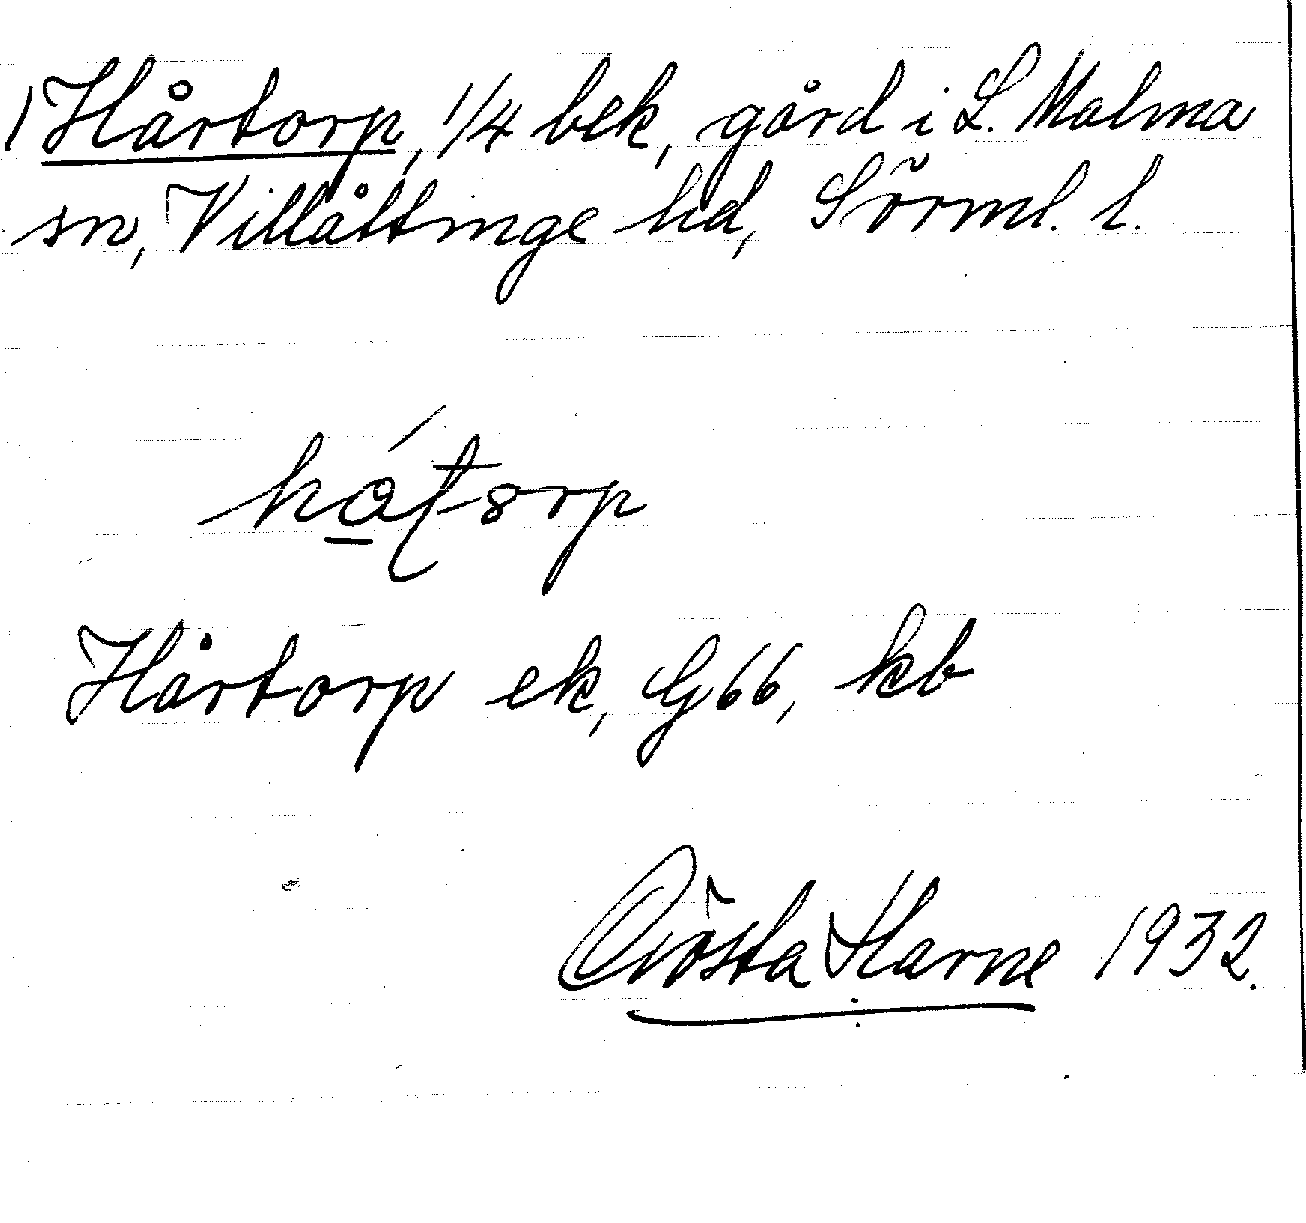 1 Hårtorp, 1/4 bek, gård i L. Malma
sn, Villåttinge hd, Sörml. l.
hǻʈȣrp
Hårtorp ek, G66, kb
Gösta Harne 1932.